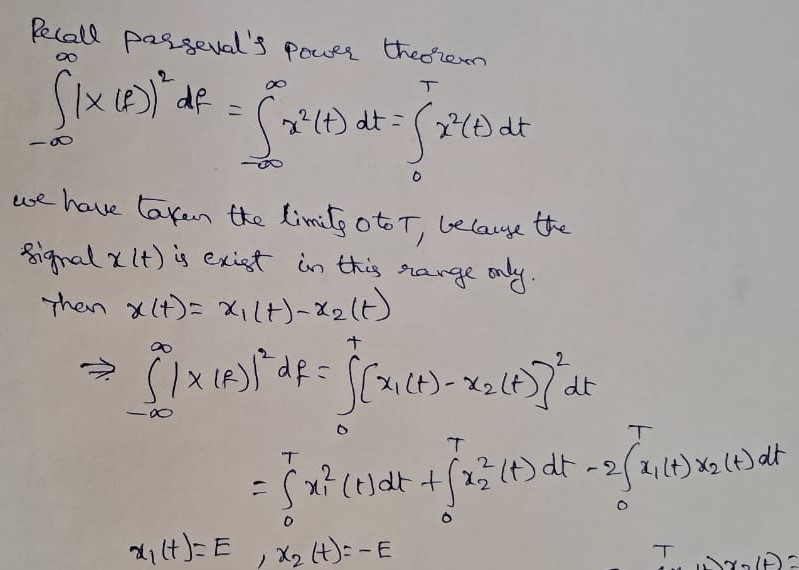 Recall parseval's power theorem
∫_{-∞}^{∞} |X(f)|² df = ∫_{-∞}^{∞} x²(t) dt = ∫_{0}^{T} x²(t) dt
we have taken the limits 0 to T, because the
signal x(t) is exist in this range only.
Then x(t) = x₁(t) - x₂(t)
⇒ ∫_{-∞}^{∞} |X(f)|² df = ∫_{0}^{T} [x₁(t) - x₂(t)]² dt
= ∫_{0}^{T} x₁²(t) dt + ∫_{0}^{T} x₂²(t) dt - 2∫_{0}^{T} x₁(t) x₂(t) dt
x₁(t) = E , x₂(t) = -E
T x₂(t) =